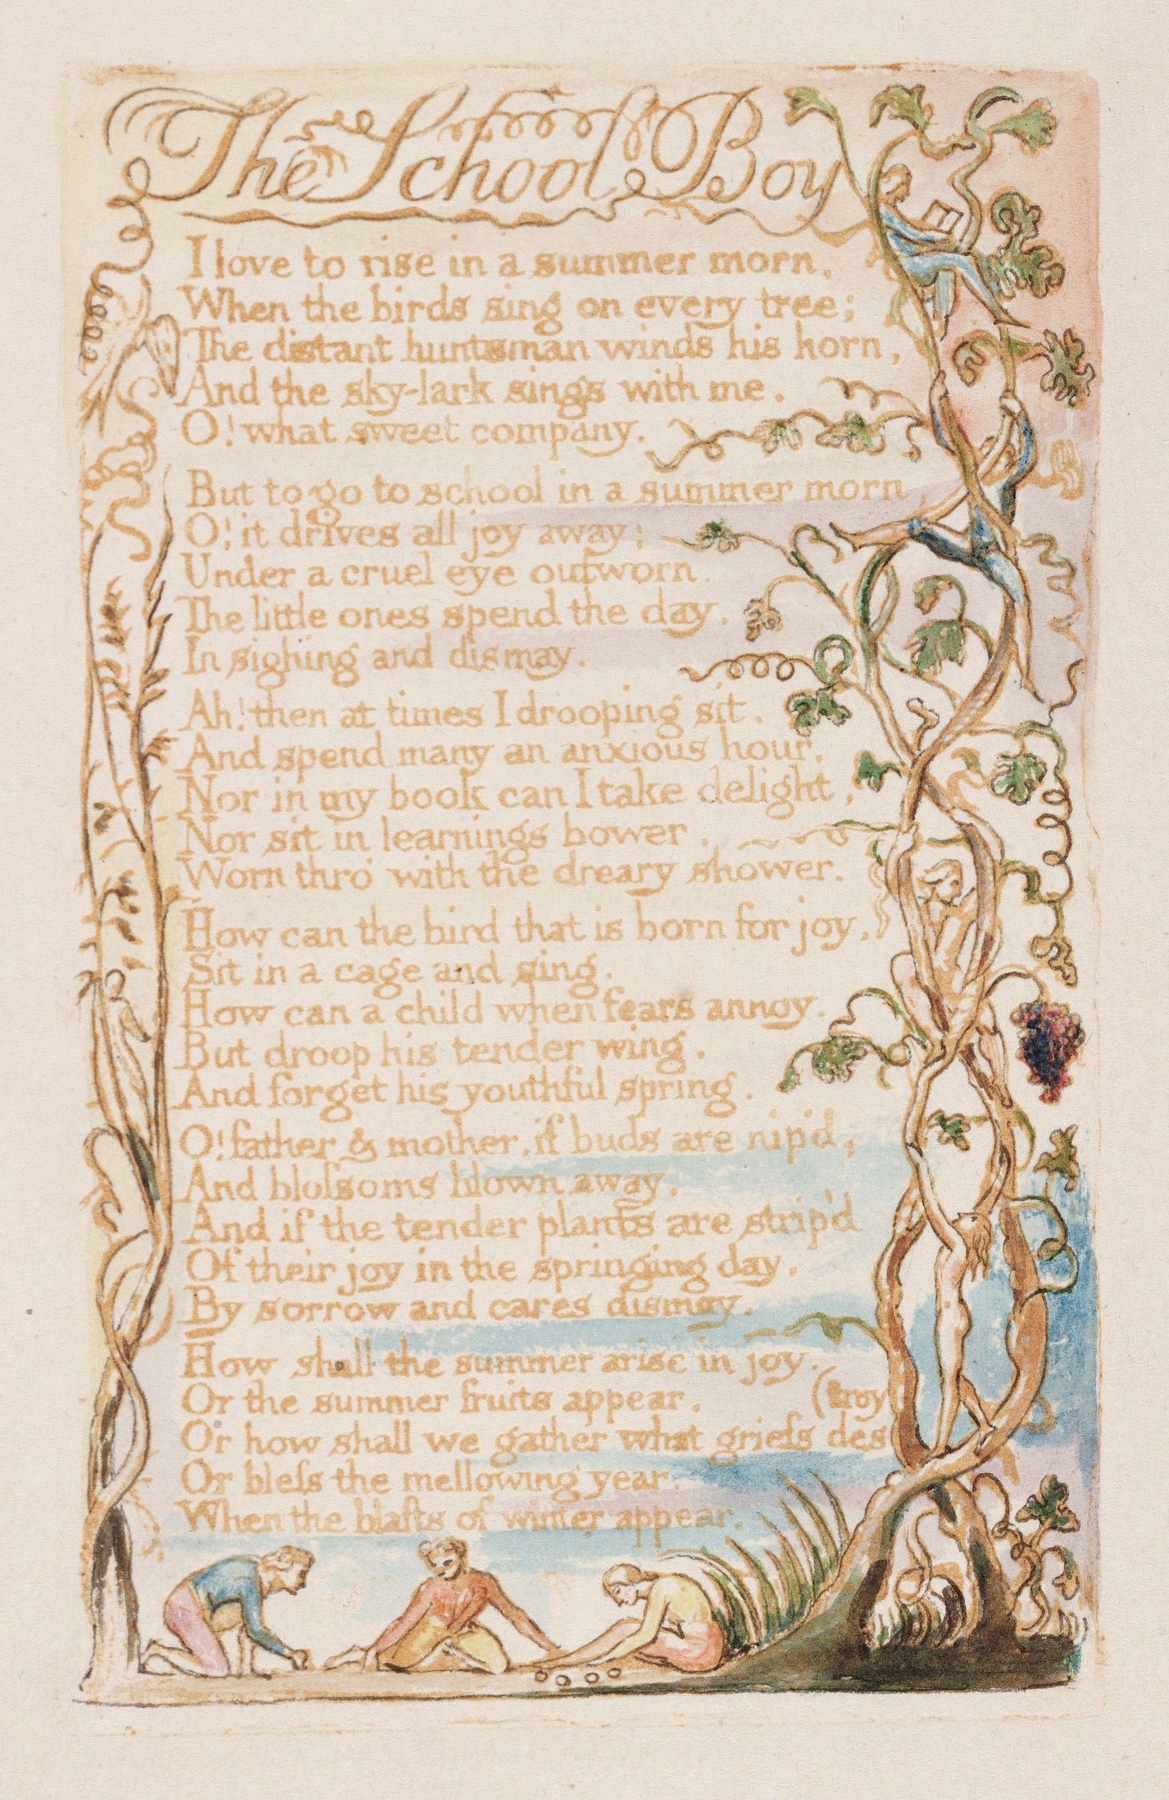 The School Boy
I love to rise in a summer morn,
When the birds sing on every tree;
The distant huntsman winds his horn,
And the sky-lark sings with me.
O! what sweet company.
But to go to school in a summer morn
O! it drives all joy away;
Under a cruel eye outworn,
The little ones spend the day,
In sighing and dismay.
Ah! then at times I drooping sit,
And spend many an anxious hour,
Nor in my book can I take delight,
Nor sit in learnings bower,
Worn thro' with the dreary shower.
How can the bird that is born for joy,
Sit in a cage and sing.
How can a child when fears annoy,
But droop his tender wing,
And forget his youthful spring.
O! father & mother, if buds are nip'd,
And bloſsoms blown away,
And if the tender plants are strip'd
Of their joy in the springing day,
By sorrow and cares dismay,
How shall the summer arise in joy.
Or the summer fruits appear,
(troy
Or how shall we gather what griefs des
Or bleſs the mellowing year,
When the blasts of winter appear.